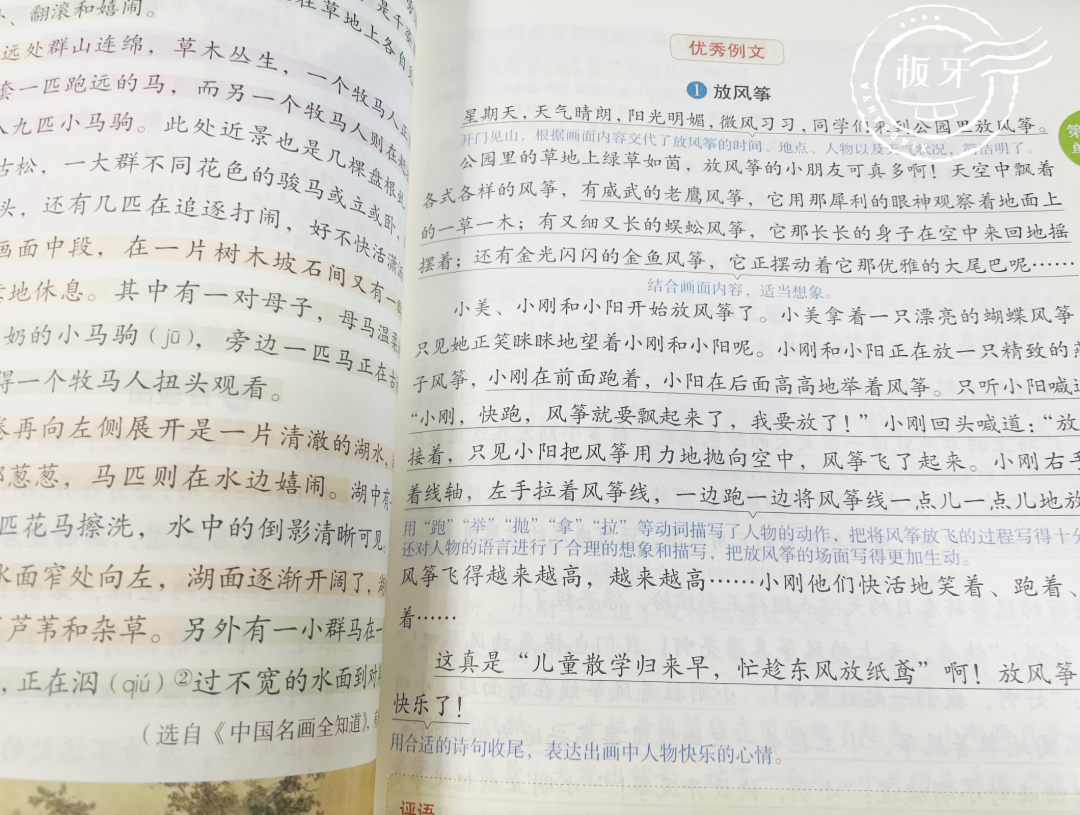 、翻滚和嬉闹。
在草地上各自
远处群山连绵，草木丛生，一个牧马人正
套一匹跑远的马，而另一个牧马人则在
九匹小马驹。此处近景也是几棵盘根
古松，一大群不同花色的骏马或立或卧，
头，还有几匹在追逐打闹，好不快活潇
画面中段，在一片树木坡石间又有一
地休息。其中有一对母子，母马温柔
奶的小马驹（jū），旁边一匹马正在
得一个牧马人扭头观看。
卷再向左侧展开是一片清澈的湖水，
郁葱葱，马匹则在水边嬉闹。湖中有
匹花马擦洗，水中的倒影清晰可见。
水面窄处向左，湖面逐渐开阔了，湖
芦苇和杂草。另外有一小群马在一
，正在泅（qiú）②过不宽的水面到对
（选自《中国名画全知道》，
优秀例文
1 放风筝
星期天，天气晴朗，阳光明媚，微风习习，同学们来到公园里放风筝。
开门见山，根据画面内容交代了放风筝的时间、地点、人物以及天气状况，简洁明了。
公园里的草地上绿草如茵，放风筝的小朋友可真多啊！天空中飘着
各式各样的风筝，有威武的老鹰风筝，它用那犀利的眼神观察着地面上
的一草一木；有又细又长的蜈蚣风筝，它那长长的身子在空中来回地摇
摆着；还有金光闪闪的金鱼风筝，它正摆动着它那优雅的大尾巴呢……
结合画面内容，适当想象。
小美、小刚和小阳开始放风筝了。小美拿着一只漂亮的蝴蝶风筝
只见她正笑眯眯地望着小刚和小阳呢。小刚和小阳正在放一只精致的燕
子风筝，小刚在前面跑着，小阳在后面高高地举着风筝。只听小阳喊道
“小刚，快跑，风筝就要飘起来了，我要放了！”小刚回头喊道：“放
接着，只见小阳把风筝用力地抛向空中，风筝飞了起来。小刚右手
着线轴，左手拉着风筝线，一边跑一边将风筝线一点儿一点儿地放
用“跑”“举”“抛”“拿”“拉”等动词描写了人物的动作，把将风筝放飞的过程写得十分
还对人物的语言进行了合理的想象和描写，把放风筝的场面写得更加生动。
风筝飞得越来越高，越来越高……小刚他们快活地笑着、跑着、
着……
这真是“儿童散学归来早，忙趁东风放纸鸢”啊！放风筝
快乐了！
用合适的诗句收尾，表达出画中人物快乐的心情。
评语
第
单
板牙